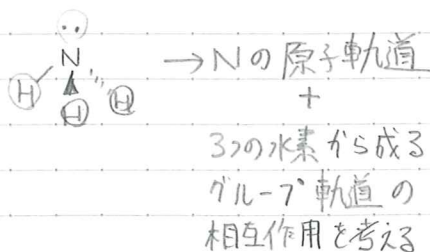 N
H
H
H
→Nの原子軌道
+
3つの水素から成る
グループ軌道の
相互作用を考える